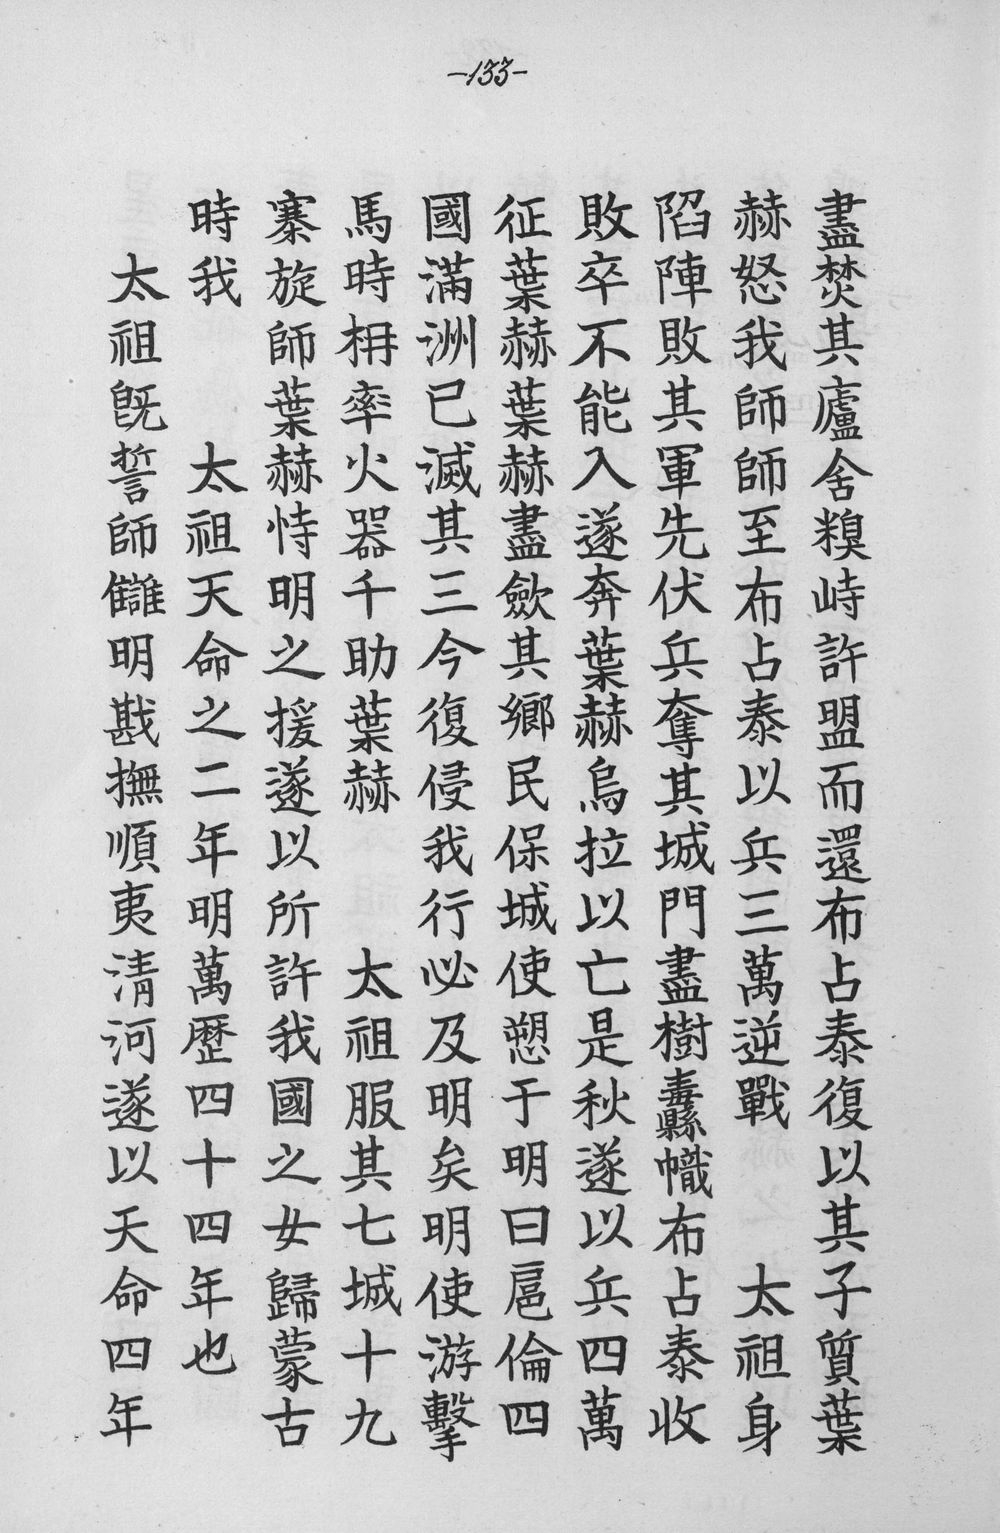 -133-
盡焚其廬舍糗峙許盟而還布占泰復以其子質葉
赫怒我師師至布占泰以兵三萬逆戰　太祖身
陷陣敗其軍先伏兵奪其城門盡樹毒縣幟布占泰收
敗卒不能入遂奔葉赫烏拉以亡是秋遂以兵四萬
征葉赫葉赫盡歛其鄉民保城使愬于明曰扈倫四
國滿洲已滅其三今復侵我行必及明矣明使游擊
馬時枏率火器千助葉赫　太祖服其七城十九
寨旋師葉赫恃明之援遂以所許我國之女歸蒙古
時我　太祖天命之二年明萬歷四十四年也
太祖旣誓師讎明戡撫順夷淸河遂以天命四年